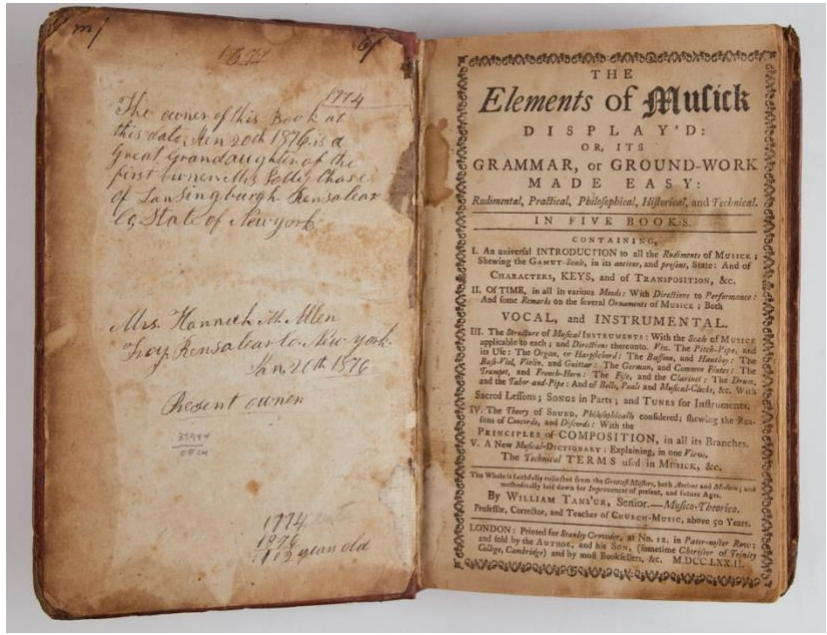 1774
The owner of this Book at
this date, Jan 20th 1876 is a
Great, Grandaughter of the
first owner Mrs Polly Chase
of Lansingburgh Rensalear
Co, State of New york
Mrs. Hannah M. Allen
Troy Rensalear Co. New-york
Jan 20th 1876
Present owner
1774
1876
102 year old
THE
Elements of Musick
DISPLAY'D:
OR, ITS
GRAMMAR, or GROUND-WORK
MADE EASY:
Rudimental, Practical, Philosophical, Historical, and Technical.
IN FIVE BOOKS.
CONTAINING,
I. An universal INTRODUCTION to all the Rudiments of MUSICK;
Shewing the GAMUT-Scale, in its ancient, and present, State: And of
CHARACTERS, KEYS, and of TRANSPOSITION, &c.
II. Of TIME, in all its various Moods: With Directions to Performance:
And some Remarks on the several Ornaments of MUSICK; Both
VOCAL, and INSTRUMENTAL.
III. The Structure of Musical INSTRUMENTS: With the Scale of MUSICK
applicable to each; and Directions thereunto. Viz. The Pitch-Pipe, and
its Use: The Organ, or Harpsichord: The Bassoon, and Hautboy: The
Bass-Viol, Violin, and Guittar: The German, and Common Flutes: The
Trumpet, and French-Horn: The Fife, and the Clarinet: The Drum,
and the Tabor-and-Pipe: And of Bells, Peals and Musical-Clocks, &c. With
Sacred Lessons; SONGS in Parts; and TUNES for Instruments.
IV. The Theory of SOUND, Philosophically considered; shewing the Rea-
sons of Concords, and Discords: With the
PRINCIPLES of COMPOSITION, in all its Branches.
V. A New Musical-DICTIONARY: Explaining, in one View,
The Technical TERMS used in MUSICK, &c.
The Whole is faithfully collected from the Greatest Masters, both Ancient and Modern; and
methodically laid down for Improvement of present, and future Ages.
By WILLIAM TANS'UR, Senior.—Musico-Theorico.
Professor, Corrector, and Teacher of CHURCH-MUSIC, above 50 Years.
LONDON: Printed for Stanley Crowder, at No. 12. in Pater-noster Row:
and sold by the AUTHOR, and his SON, (sometime Chorister of Trinity
College, Cambridge) and by most Booksellers, &c. M.DCC.LXXII.